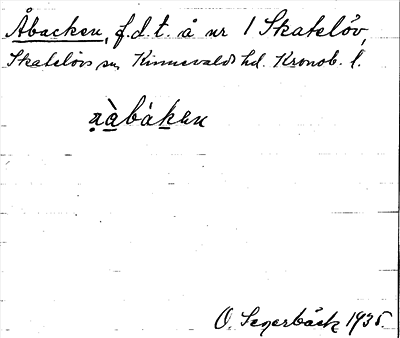 Åbacken, f.d.t. å nr 1 Skatelöv,
Skatelövs sn, Kinnevalds hd. Kronob. l.
O. Segerbäck 1935.